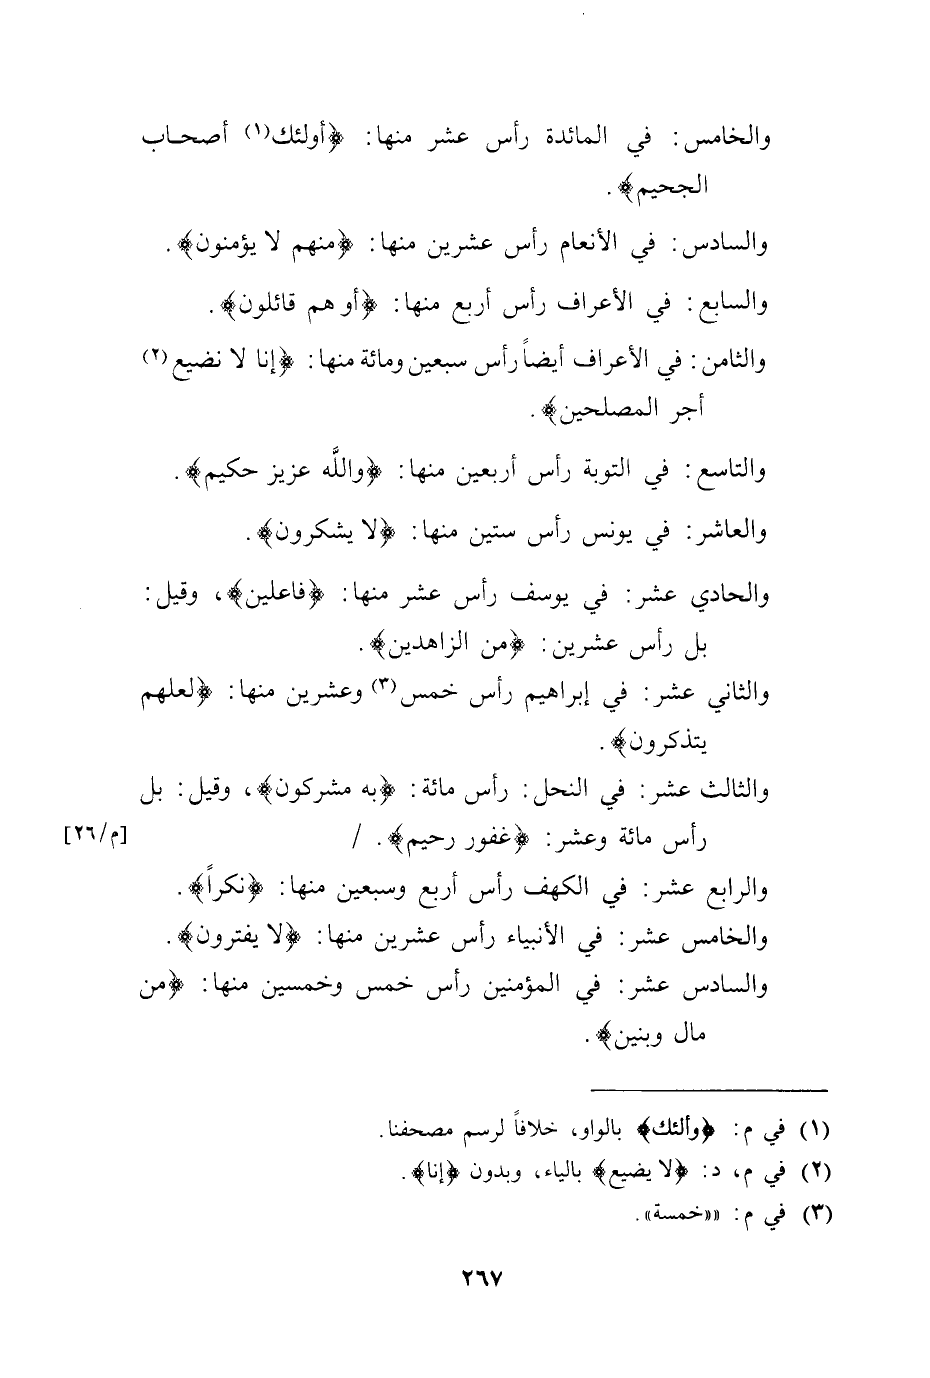 والخامس: في المائدة رأس عشر منها: ﴿أولئك(١) أصحاب
الجحيم﴾.
والسادس: في الأنعام رأس عشرين منها: ﴿منهم لا يؤمنون﴾.
والسابع: في الأعراف رأس أربع منها: ﴿أو هم قائلون﴾.
والثامن: في الأعراف أيضاً رأس سبعين ومائة منها: ﴿إنا لا نضيع(٢)
أجر المصلحين﴾.
والتاسع: في التوبة رأس أربعين منها: ﴿واللَّه عزيز حكيم﴾.
والعاشر: في يونس رأس ستين منها: ﴿لا يشكرون﴾.
والحادي عشر: في يوسف رأس عشر منها: ﴿فاعلين﴾، وقيل:
بل رأس عشرين: ﴿من الزاهدين﴾.
والثاني عشر: في إبراهيم رأس خمس(٣) وعشرين منها: ﴿لعلهم
يتذكرون﴾.
والثالث عشر: في النحل: رأس مائة: ﴿به مشركون﴾، وقيل: بل
رأس مائة وعشر: ﴿غفور رحيم﴾. / [م/٢٦]
والرابع عشر: في الكهف رأس أربع وسبعين منها: ﴿نكراً﴾.
والخامس عشر: في الأنبياء رأس عشرين منها: ﴿لا يفترون﴾.
والسادس عشر: في المؤمنين رأس خمس وخمسين منها: ﴿من
مال وبنين﴾.
(١) في م: ﴿وألئك﴾ بالواو، خلافاً لرسم مصحفنا.
(٢) في م، د: ﴿لا يضيع﴾ بالياء، وبدون ﴿إنا﴾.
(٣) في م: ««خمسة».
٢٦٧